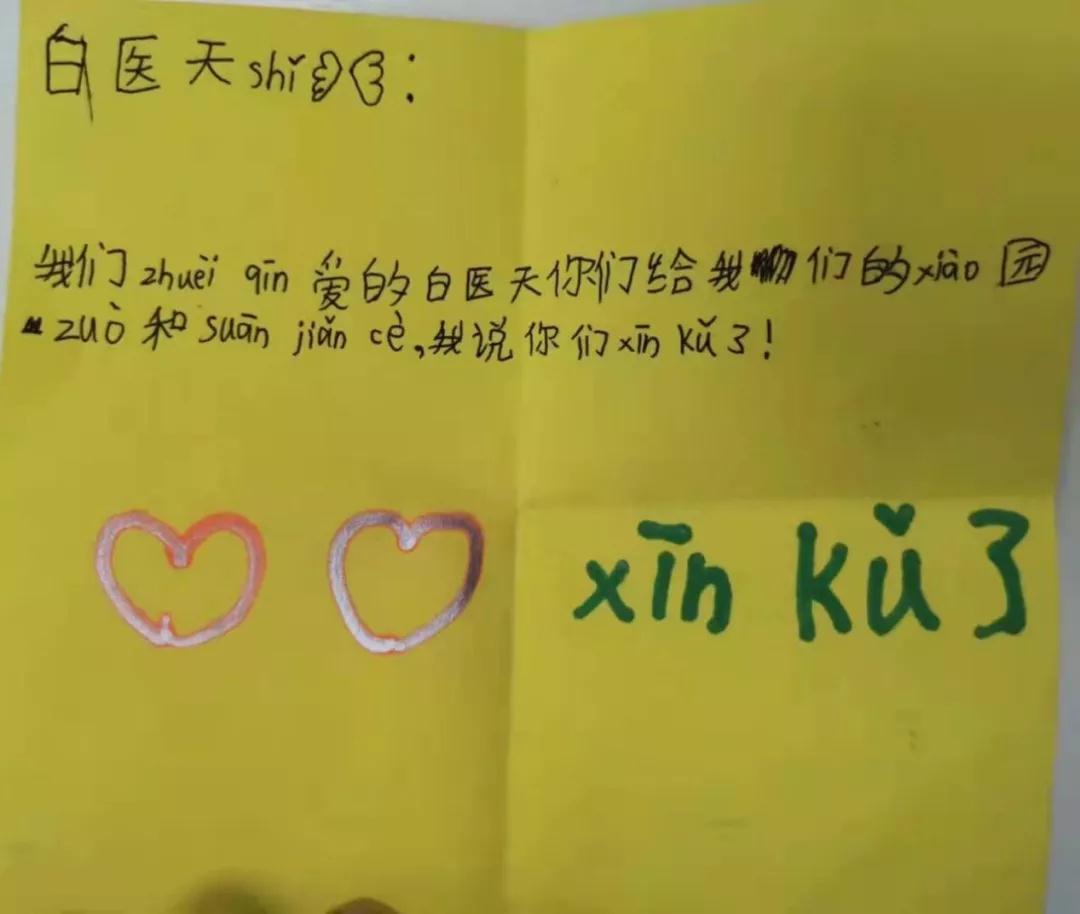 白医天shǐ:
我们zhuèi qīn爱的白医天你们给我们的xiào园
zuò和suān jiǎn cè,我说你们xīn kǔ了!
xīn kǔ了